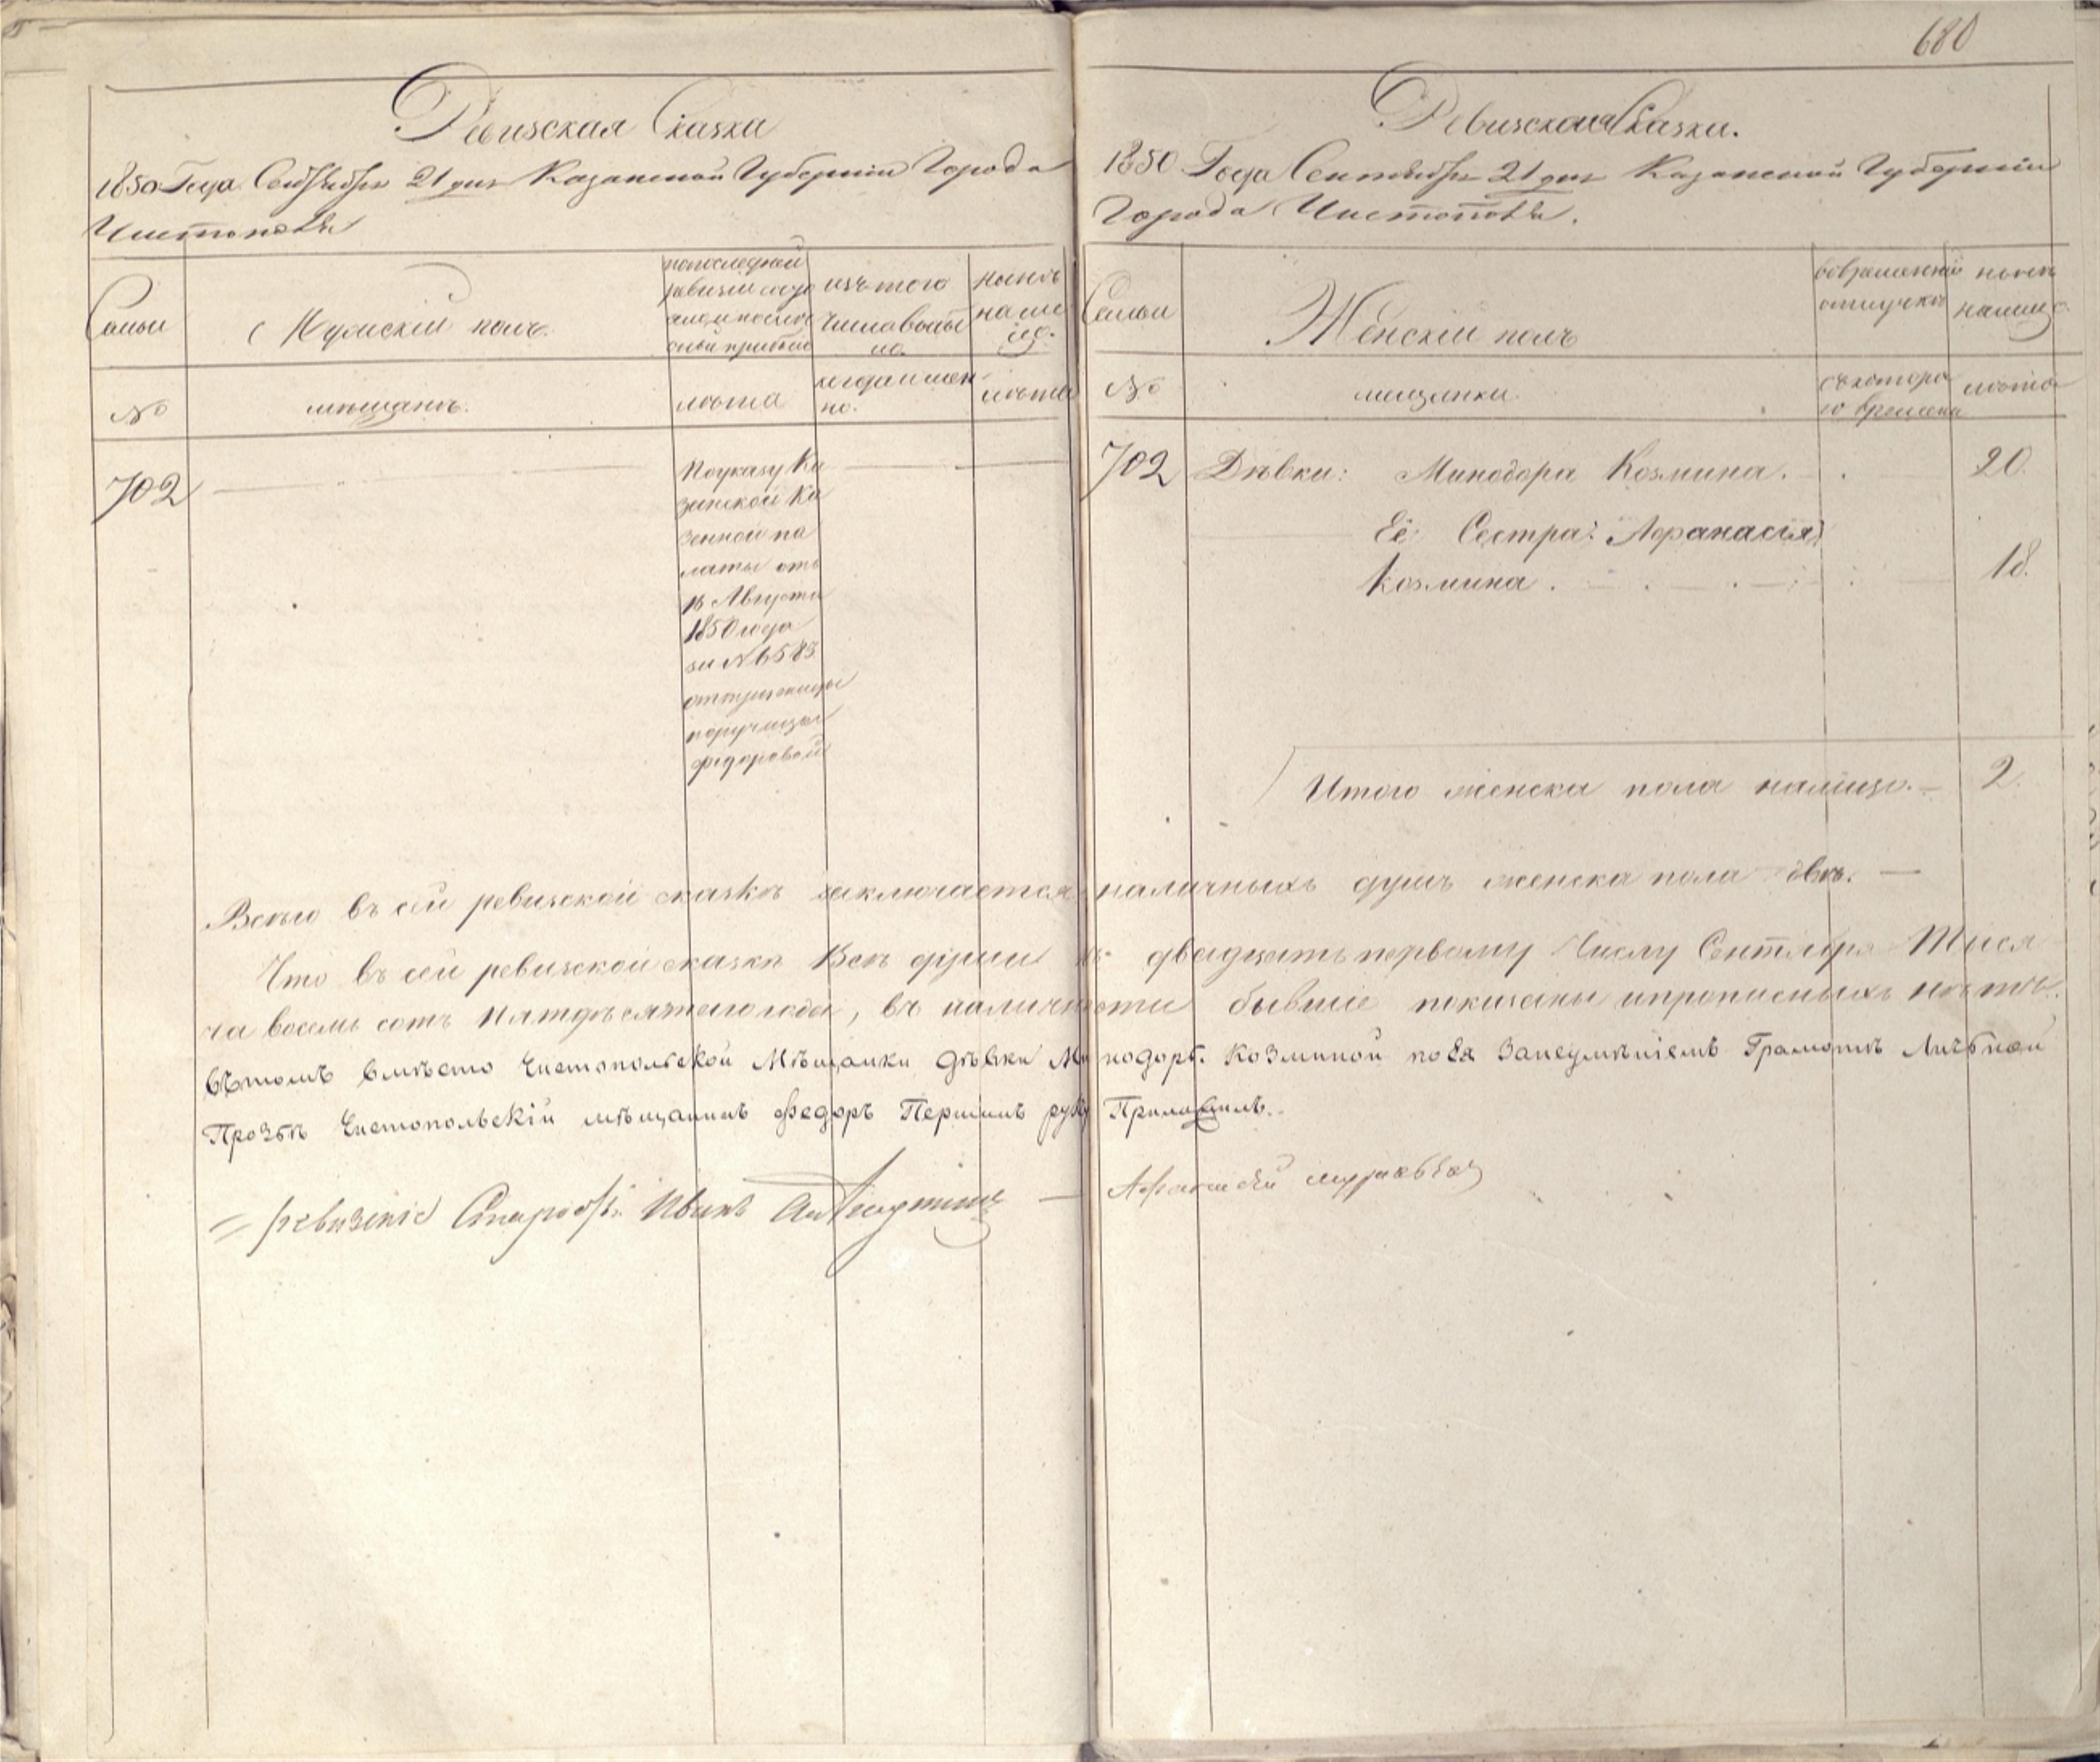 680
Ревизская Сказка
1850 Года Сентября 21 дня Казанской Губернии Города
Чистополя
Семьи
Мужский полъ.
по последней
ревизии состо
яло и после
оной прибыло
изъ того
числа выбы
ло.
ныне
на ли
цо.
№
мещане.
лета
когда имен
но.
лета
702
По указу Ка
занской Ка
зенной па
латы отъ
16 Августа
1850 года
за № 6583
отпущенницы
поручицы
Федоровой
Ревизская Сказка.
1850 Года Сентября 21 дня Казанской Губернии
Города Чистополя.
Семьи
Женский полъ
во временной
отлучке
ныне
на лицо.
№
мещанки.
съ которо
го времени
лета
702 Дѣвки: Минодора Козмина. 20.
Её Сестра: Афанасія
Козмина. 18.
Итого женска пола налицо. 2.
Всего въ сей ревизской сказкѣ заключается наличныхъ душъ женска пола двѣ.
Что въ сей ревизской сказкѣ Всѣ души къ двадцать первому Числу Сентября Тыся
ча восемь сотъ пятдѣсятаго года, въ наличности бывшіе показаны и прописныхъ нѣтъ.
Вътомъ вмѣсто Чистопольской Мѣщанки Дѣвки Минодоры Козминой по Ея Занеумѣніемъ Грамотѣ Личьной
Прозбѣ Чистопольскій мѣщанинъ Федоръ Першинъ руку Приложилъ.
Иванъ